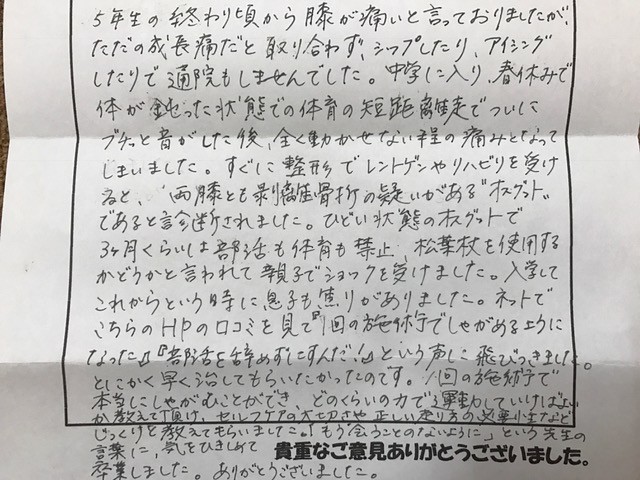 5年生の終わり頃から膝が痛いと言っておりましたが、
ただの成長痛だと取り合わず、シップしたり、アイシング
したりで通院もしませんでした。中学に入り、春休みで
体が鈍った状態での体育の短距離走でついに
ブチッと音がした後、全く動かせない程の痛みとなって
しまいました。すぐに整形でレントゲンやリハビリを受け
ると、"両膝とも剥離骨折の疑いがある"オスグット"
であると診断されました。ひどい状態のオスグットで
3ヶ月くらいは部活も体育も禁止、松葉杖を使用する
かどうかと言われて親子でショックを受けました。入学して
これからという時に息子も焦りがありました。ネットで
こちらのHPの口コミを見て『1回の施術でしゃがめるように
なった』『部活を辞めずにすんだ!』という声に飛びつきました。
とにかく早く治してもらいたかったのです。1回の施術で
本当にしゃがむことができ、どのくらいの力で運動していけば良い
か教えて頂け、セルフケアの大切さや正しい走り方の必要性など
じっくりと教えてもらいました。「もう会うことのないように」という先生の
言葉に、気をひきしめて
卒業しました。ありがとうございました。
貴重なご意見ありがとうございました。